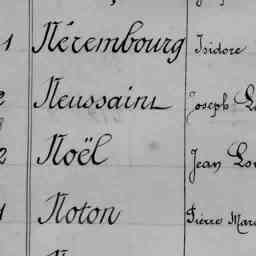 1 Nérembourg Isidore
2 Neussaint Joseph
2 Noël Jean
1 Noton Pierre